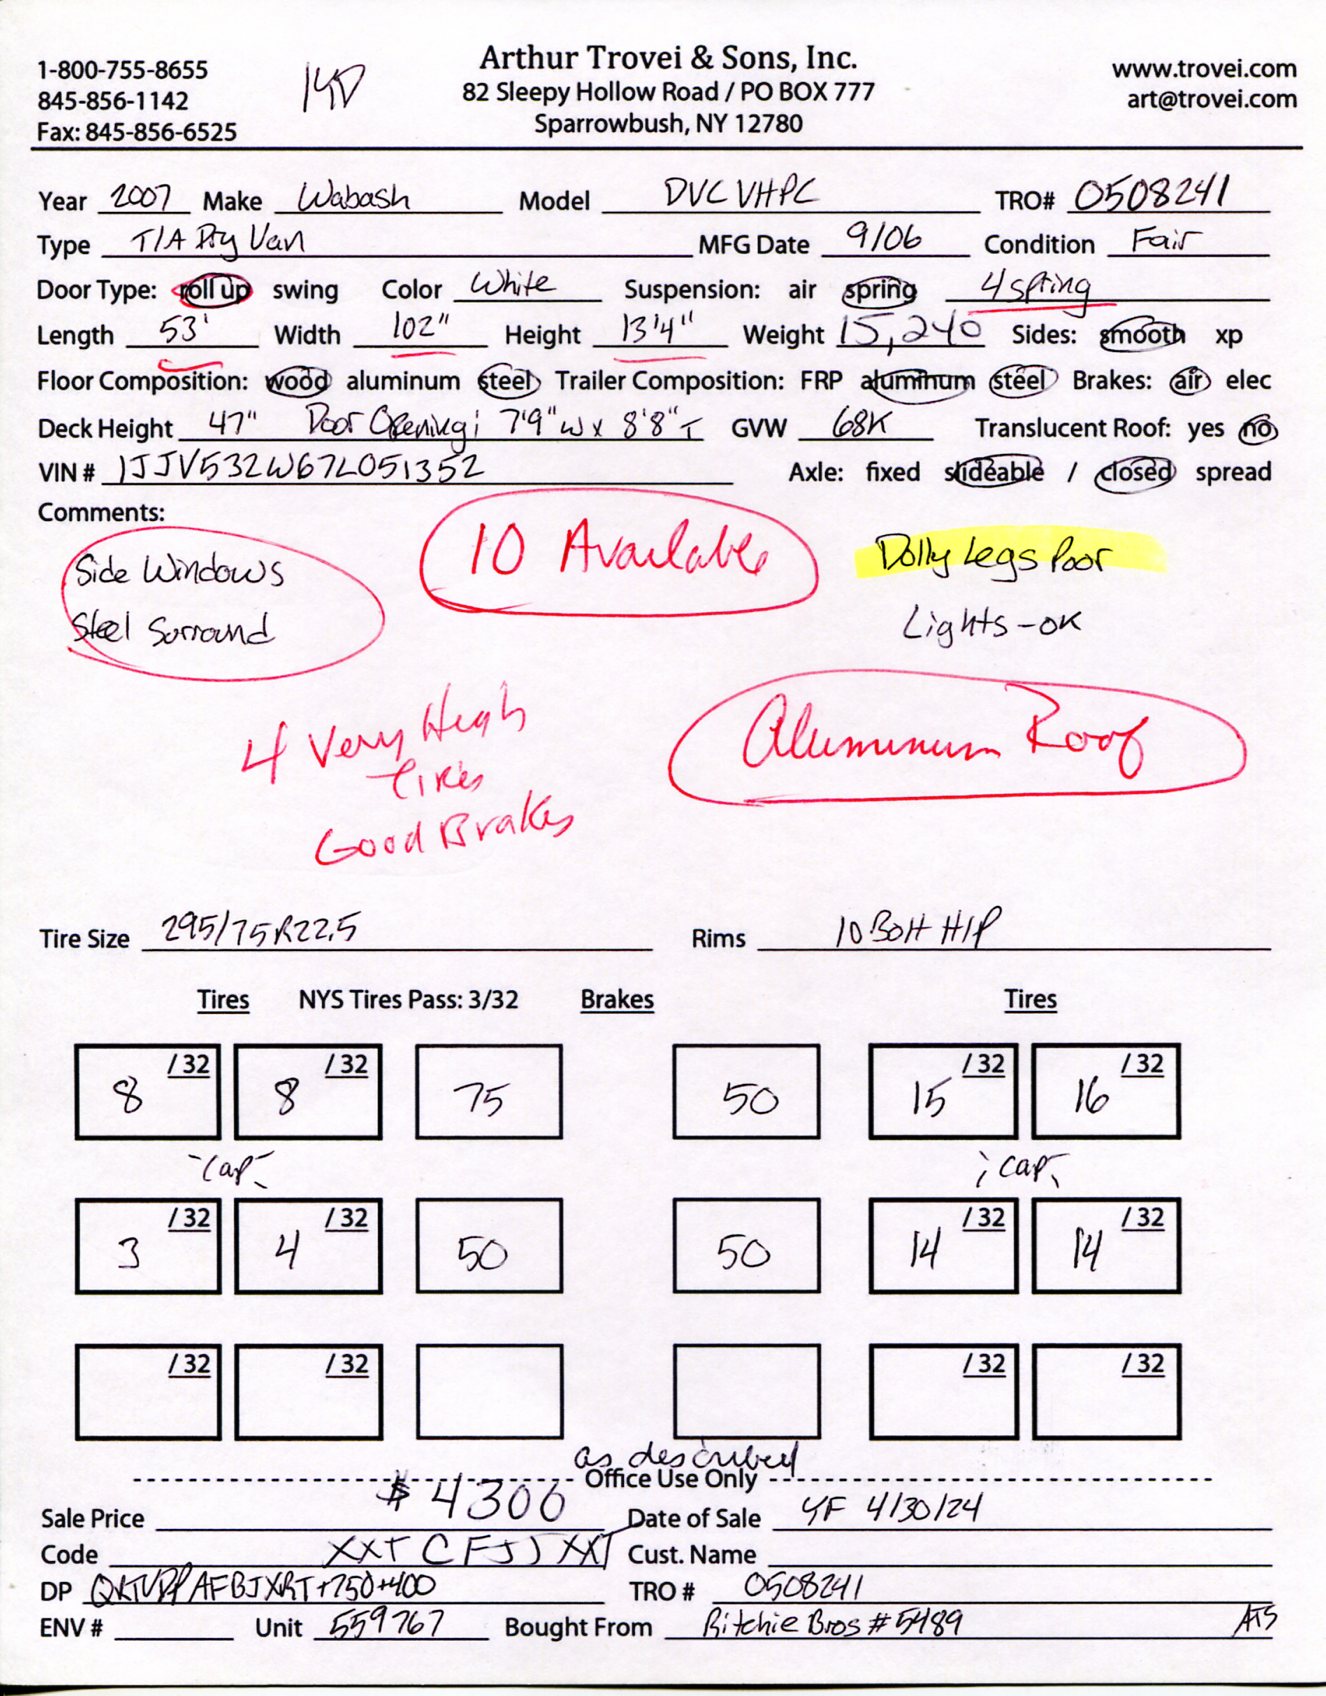 Arthur Trovei & Sons, Inc.
1-800-755-8655 82 Sleepy Hollow Road / PO BOX 777 www.trovei.com
845-856-1142 Sparrowbush, NY 12780 art@trovei.com
Fax: 845-856-6525
Year 2007 Make Wabash Model DVCVHPC TRO# 0508241
Type T/A Dry Van MFG Date 9/06 Condition Fair
Door Type: roll up swing Color White Suspension: air spring 4 spring
Length 53' Width 102" Height 13'4" Weight 15,240 Sides: smooth xp
Floor Composition: wood aluminum steel Trailer Composition: FRP aluminum steel Brakes: air elec
Deck Height 47" Door Opening: 7'9"W x 8'8"T GVW 68K Translucent Roof: yes no
VIN # 1JJV532W67L051352 Axle: fixed slideable / closed spread
Comments:
Side Windows 10 Available Dolly Legs Poor
Steel Surround Lights-OK
4 Very High Aluminum Roof
tires
Good Brakes
Tire Size 295/75R22.5 Rims 10 BOH H/P
Tires NYS Tires Pass: 3/32 Brakes Tires
8 /32 8 /32 75 50 15 /32 16 /32
-cap- cap
3 /32 4 /32 50 50 14 /32 14 /32
/32 /32 /32 /32
as described
Office Use Only
Sale Price $4300 Date of Sale YF 4/30/24
Code XXT CFJJ XXT Cust. Name
DP +750+400 TRO # 0508241
ENV # Unit 559767 Bought From Ritchie Bros #5489 ATS